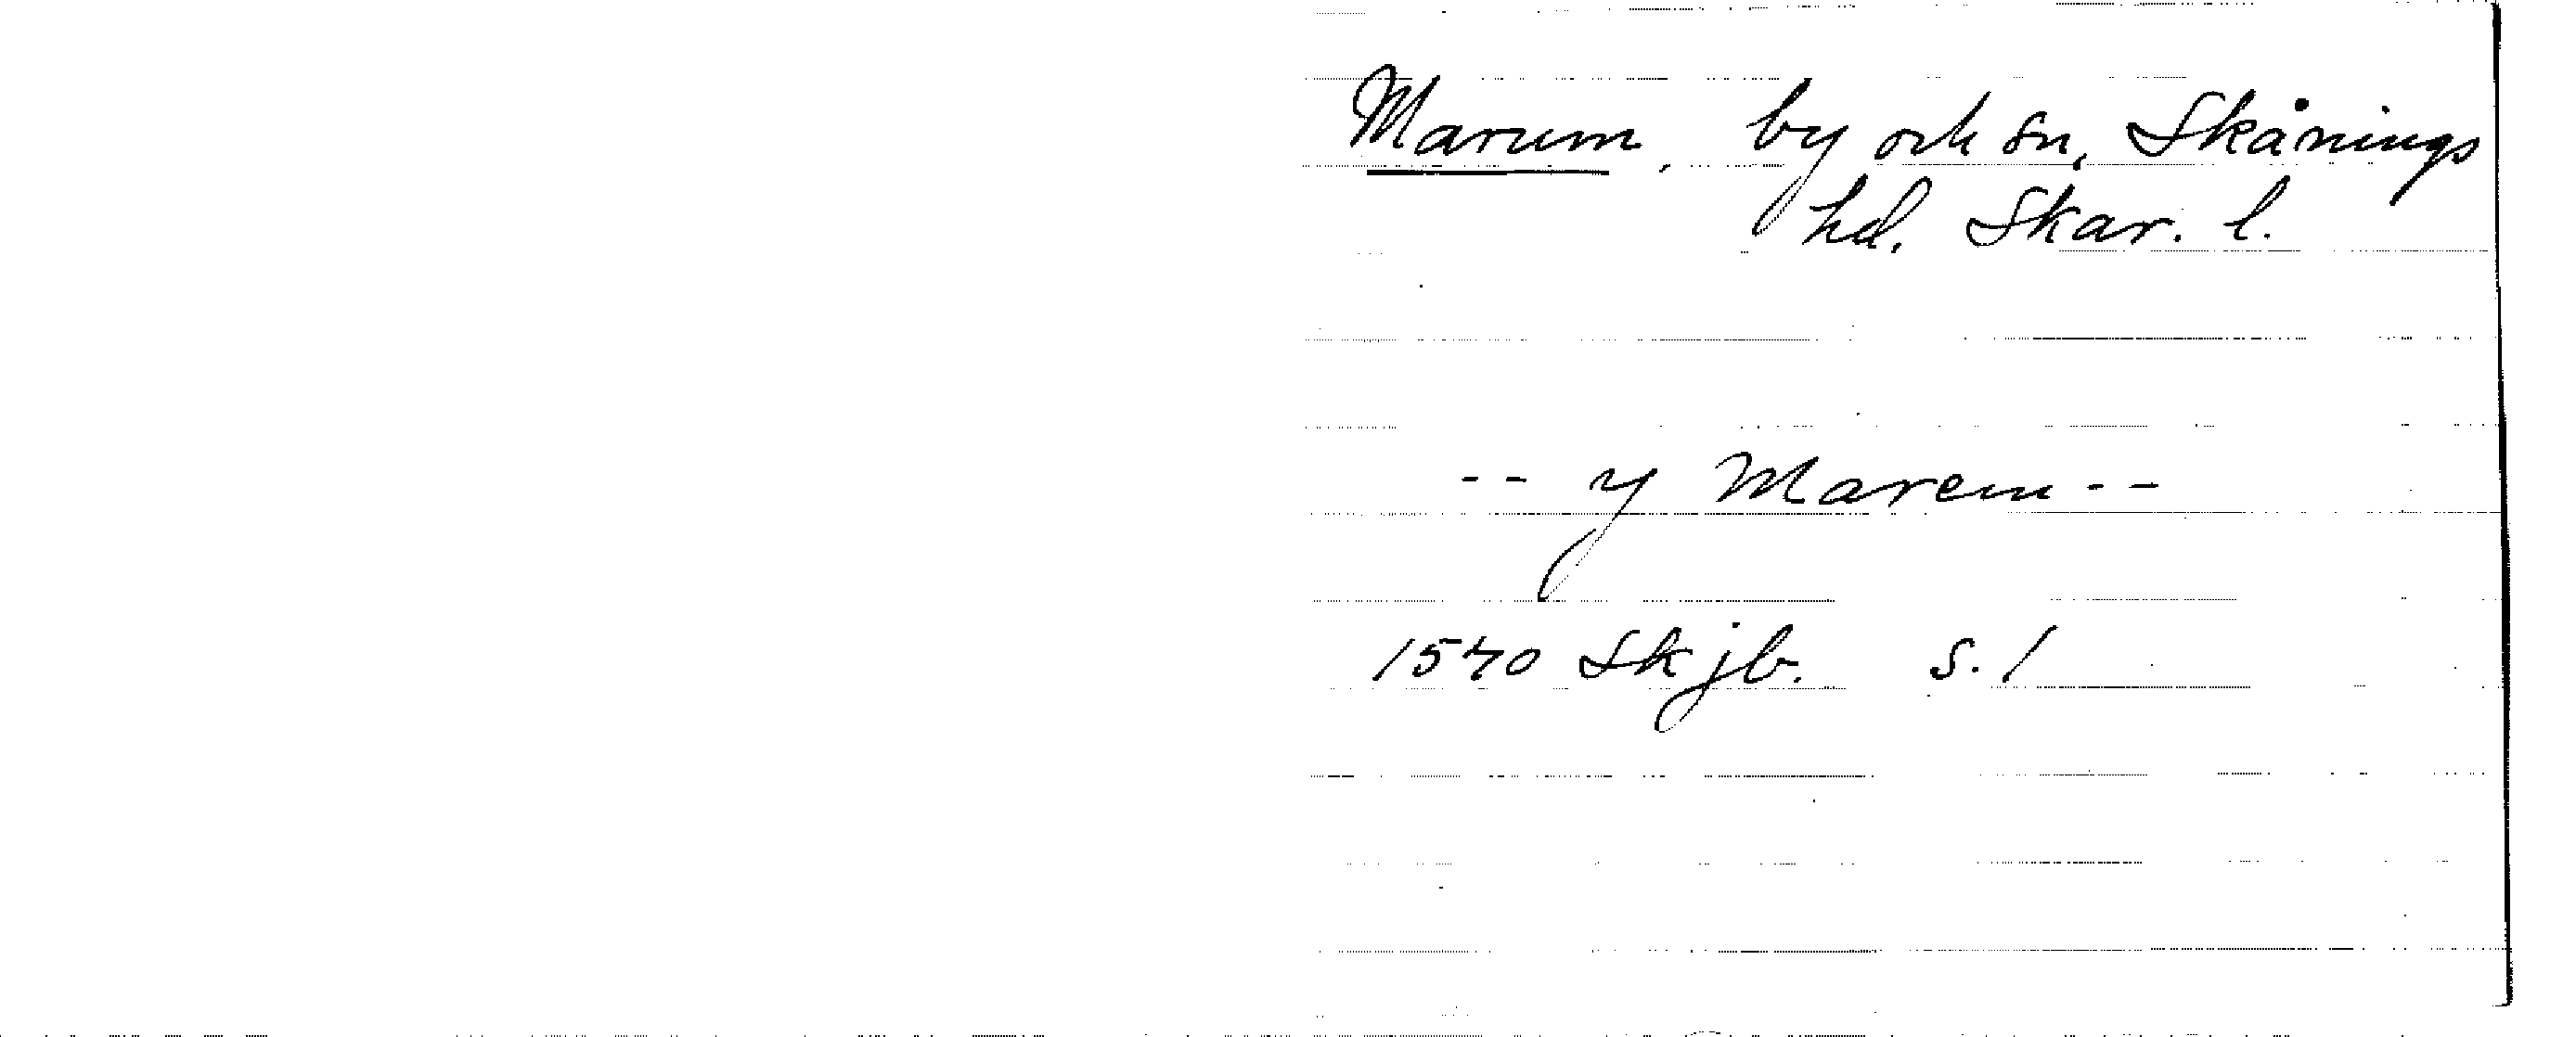 Marum, by och sn, Skånings
hd. Skar. l.
-- y Marem --
1540 Skjb. s. 1